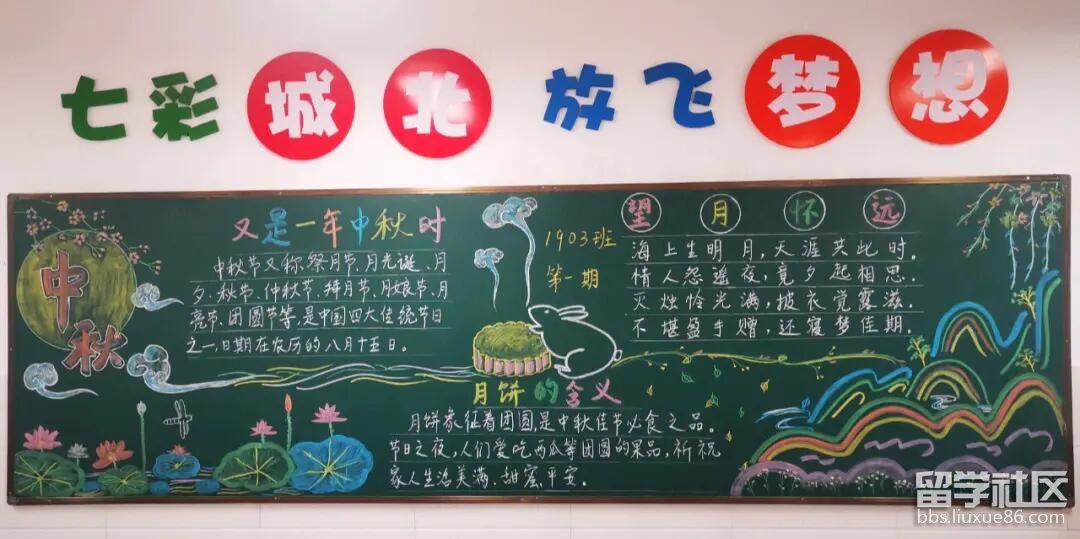 七彩城北 放飞梦想
中秋
又是一年中秋时
中秋节又称祭月节、月光诞、月
夕、秋节、仲秋节、拜月节、月娘节、月
亮节、团圆节等,是中国四大传统节日
之一,日期在农历的八月十五日。
1903班
第一期
望月怀远
海上生明月,天涯共此时.
情人怨遥夜,竟夕起相思.
灭烛怜光满,披衣觉露滋.
不堪盈手赠,还寝梦佳期.
月饼的含义
月饼象征着团圆,是中秋佳节必食之品。
节日之夜,人们爱吃西瓜等团圆的果品,祈祝
家人生活美满、甜蜜、平安。
留学社区
bbs.liuxue86.com